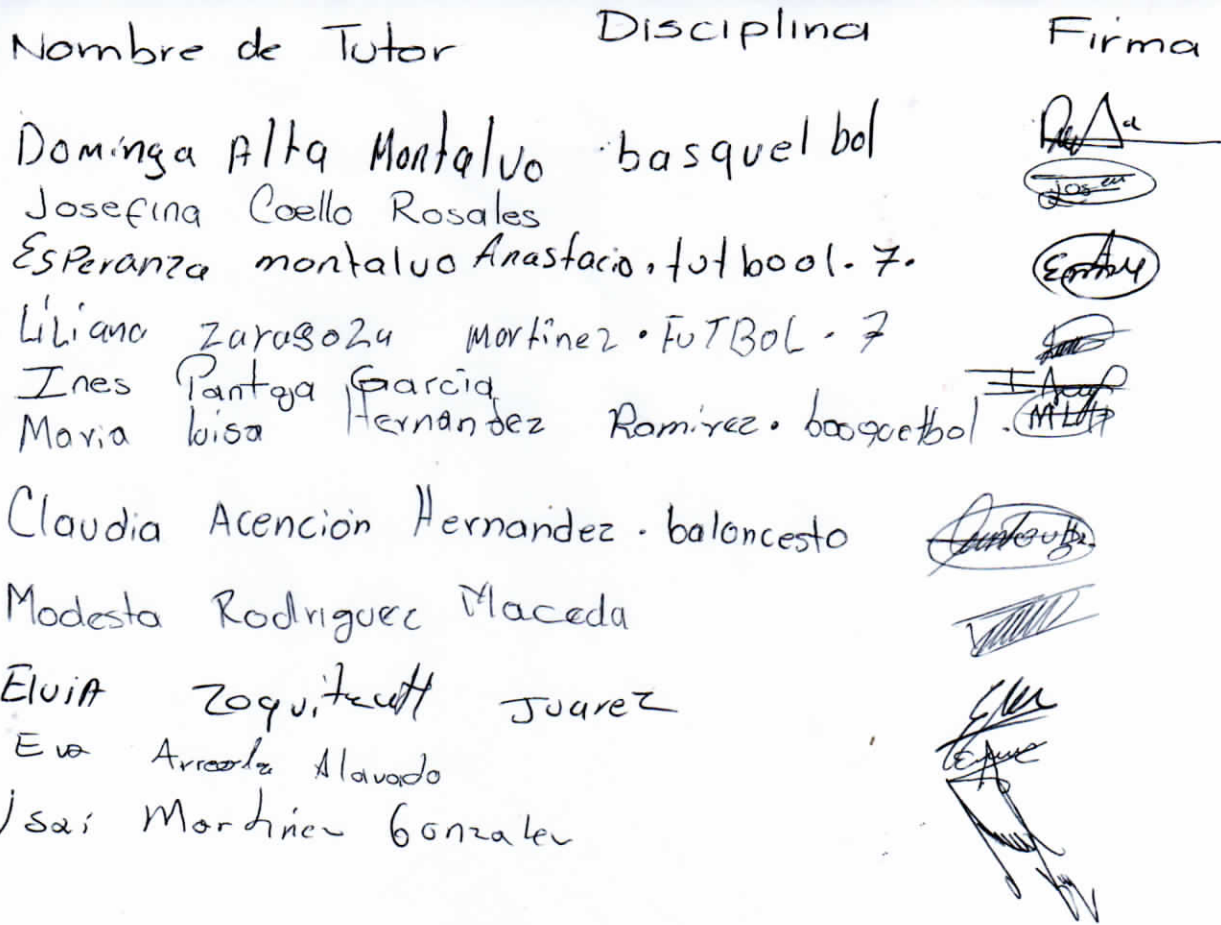 Nombre de Tutor Disciplina Firma
Dominga Alta Montalvo basquel bol
Josefina Coello Rosales
Esperanza montalvo Anastacio. futbool. 7.
Liliana Zaragoza Martinez. FUTBOL. 7
Ines Pantoja Garcia
Maria luisa Hernandez Ramirez. basquetbol.
Claudia Acención Hernandez. baloncesto
Modesta Rodriguez Maceda
Elvia Juarez
Eva Alavado
Isaí Martinez Gonzalez